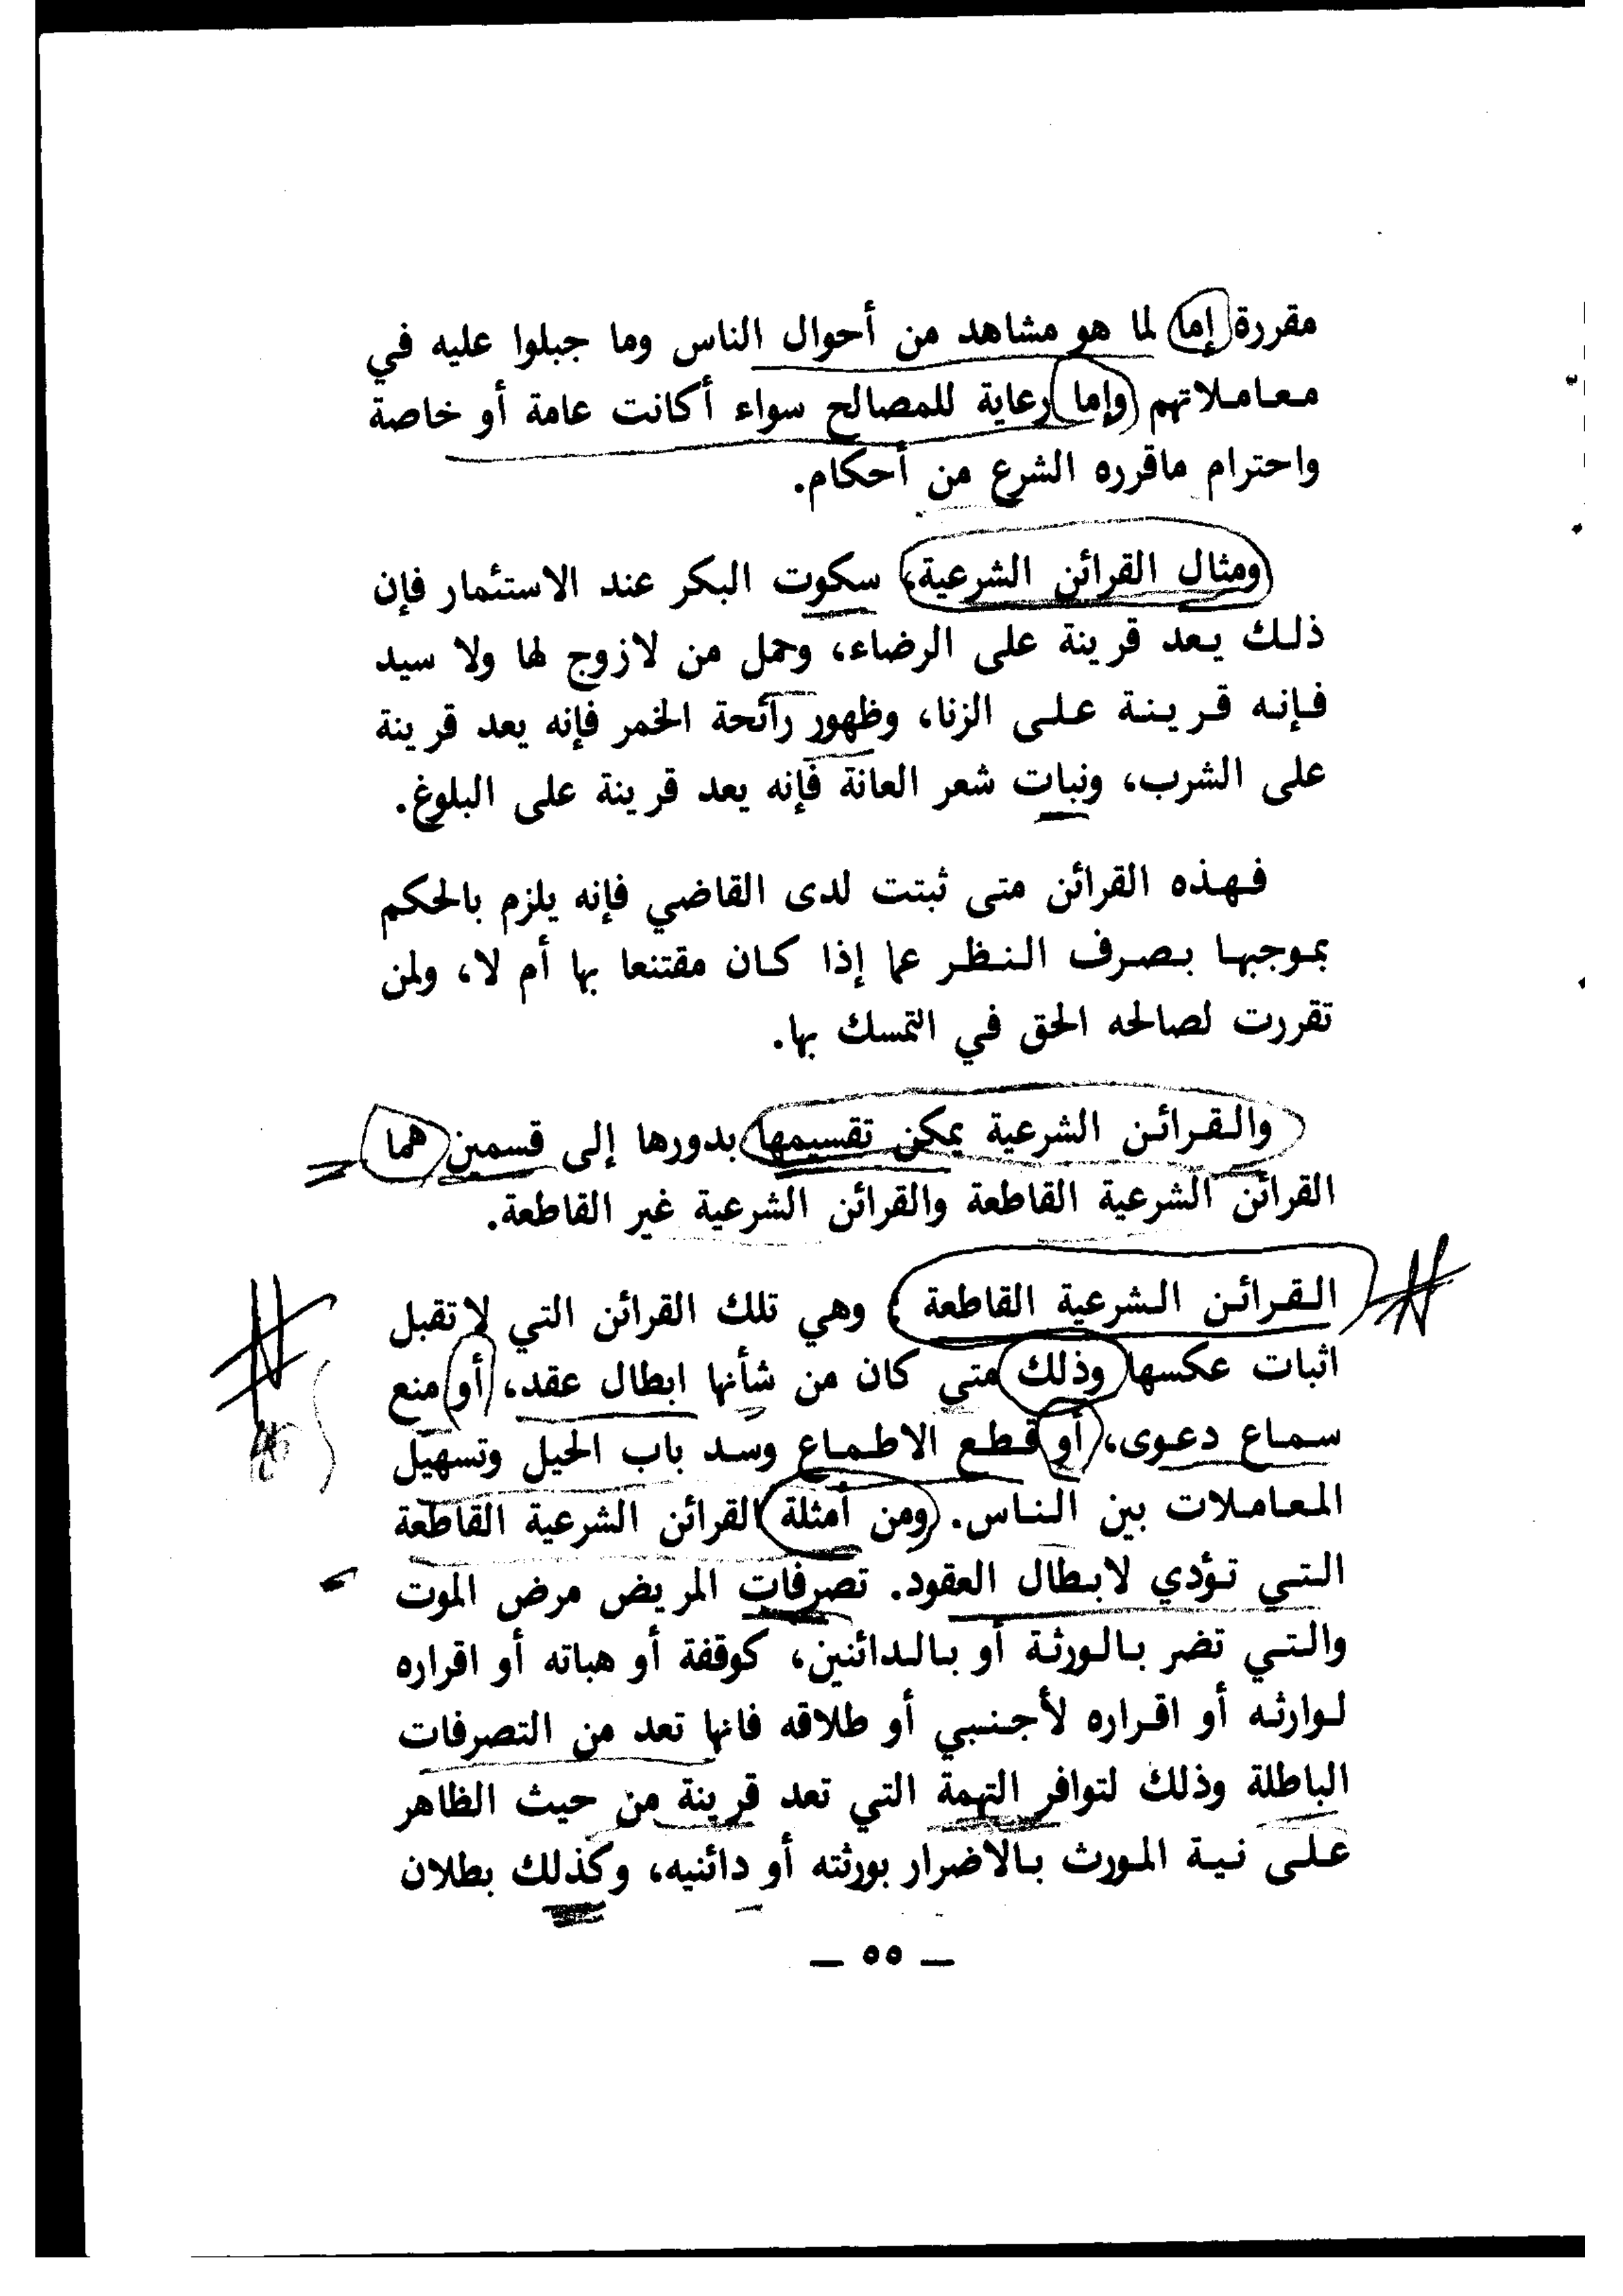 مقررة إما لما هو مشاهد من أحوال الناس وما جبلوا عليه في
معاملاتهم وإما رعاية للمصالح سواء أكانت عامة أو خاصة
واحترام ماقرره الشرع من أحكام.
ومثال القرائن الشرعية، سكوت البكر عند الاستئمار فإن
ذلك يعد قرينة على الرضاء، وحمل من لازوج لها ولا سيد
فإنه قرينة على الزنا، وظهور رائحة الخمر فإنه يعد قرينة
على الشرب، ونبات شعر العانة فإنه يعد قرينة على البلوغ.
فهذه القرائن متى ثبتت لدى القاضي فإنه يلزم بالحكم
بموجبها بصرف النظر عما إذا كان مقتنعا بها أم لا، ولمن
تقررت لصالحه الحق في التمسك بها.
والقرائن الشرعية يمكن تقسيمها بدورها إلى قسمين هما
القرائن الشرعية القاطعة والقرائن الشرعية غير القاطعة.
القرائن الشرعية القاطعة : وهي تلك القرائن التي لاتقبل
اثبات عكسها وذلك متى كان من شأنها ابطال عقد، أو منع
سماع دعوى، أو قطع الاطماع وسد باب الحيل وتسهيل
المعاملات بين الناس. ومن أمثلة القرائن الشرعية القاطعة
التي تؤدي لابطال العقود. تصرفات المريض مرض الموت
والتي تضر بالورثة أو بالدائنين، كوقفة أو هباته أو اقراره
لوارثه أو اقراره لأجنبي أو طلاقه فانها تعد من التصرفات
الباطلة وذلك لتوافر التهمة التي تعد قرينة من حيث الظاهر
على نية المورث بالاضرار بورثته أو دائنيه، وكذلك بطلان
— ٥٥ —